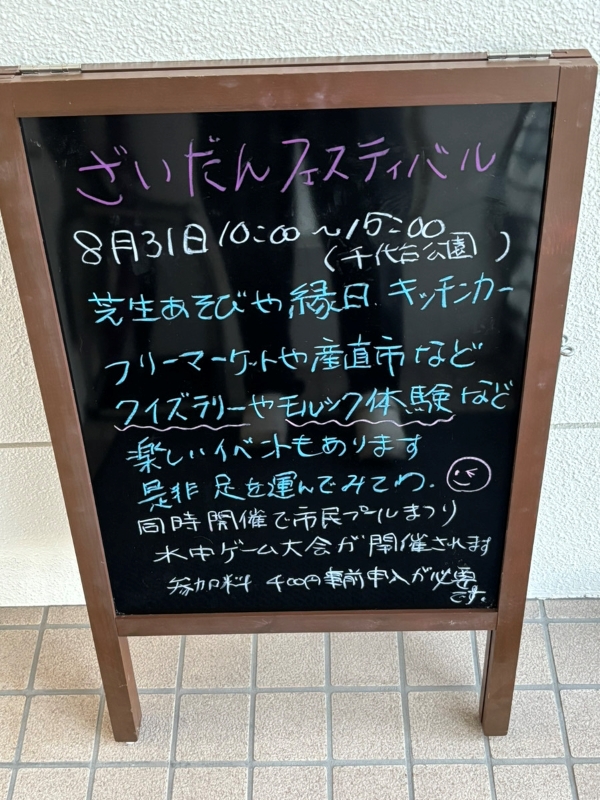 ざいだんフェスティバル
8月31日10:00〜15:00
(千代台公園)
芝生あそびや縁日 キッチンカー
フリーマーケットや産直市など
クイズラリーやモルック体験など
楽しいイベントもあります
是非足を運んでみてね.
同時開催で市民プールまつり
水中ゲーム大会が開催されます
参加料 400円事前申入が必要
です。